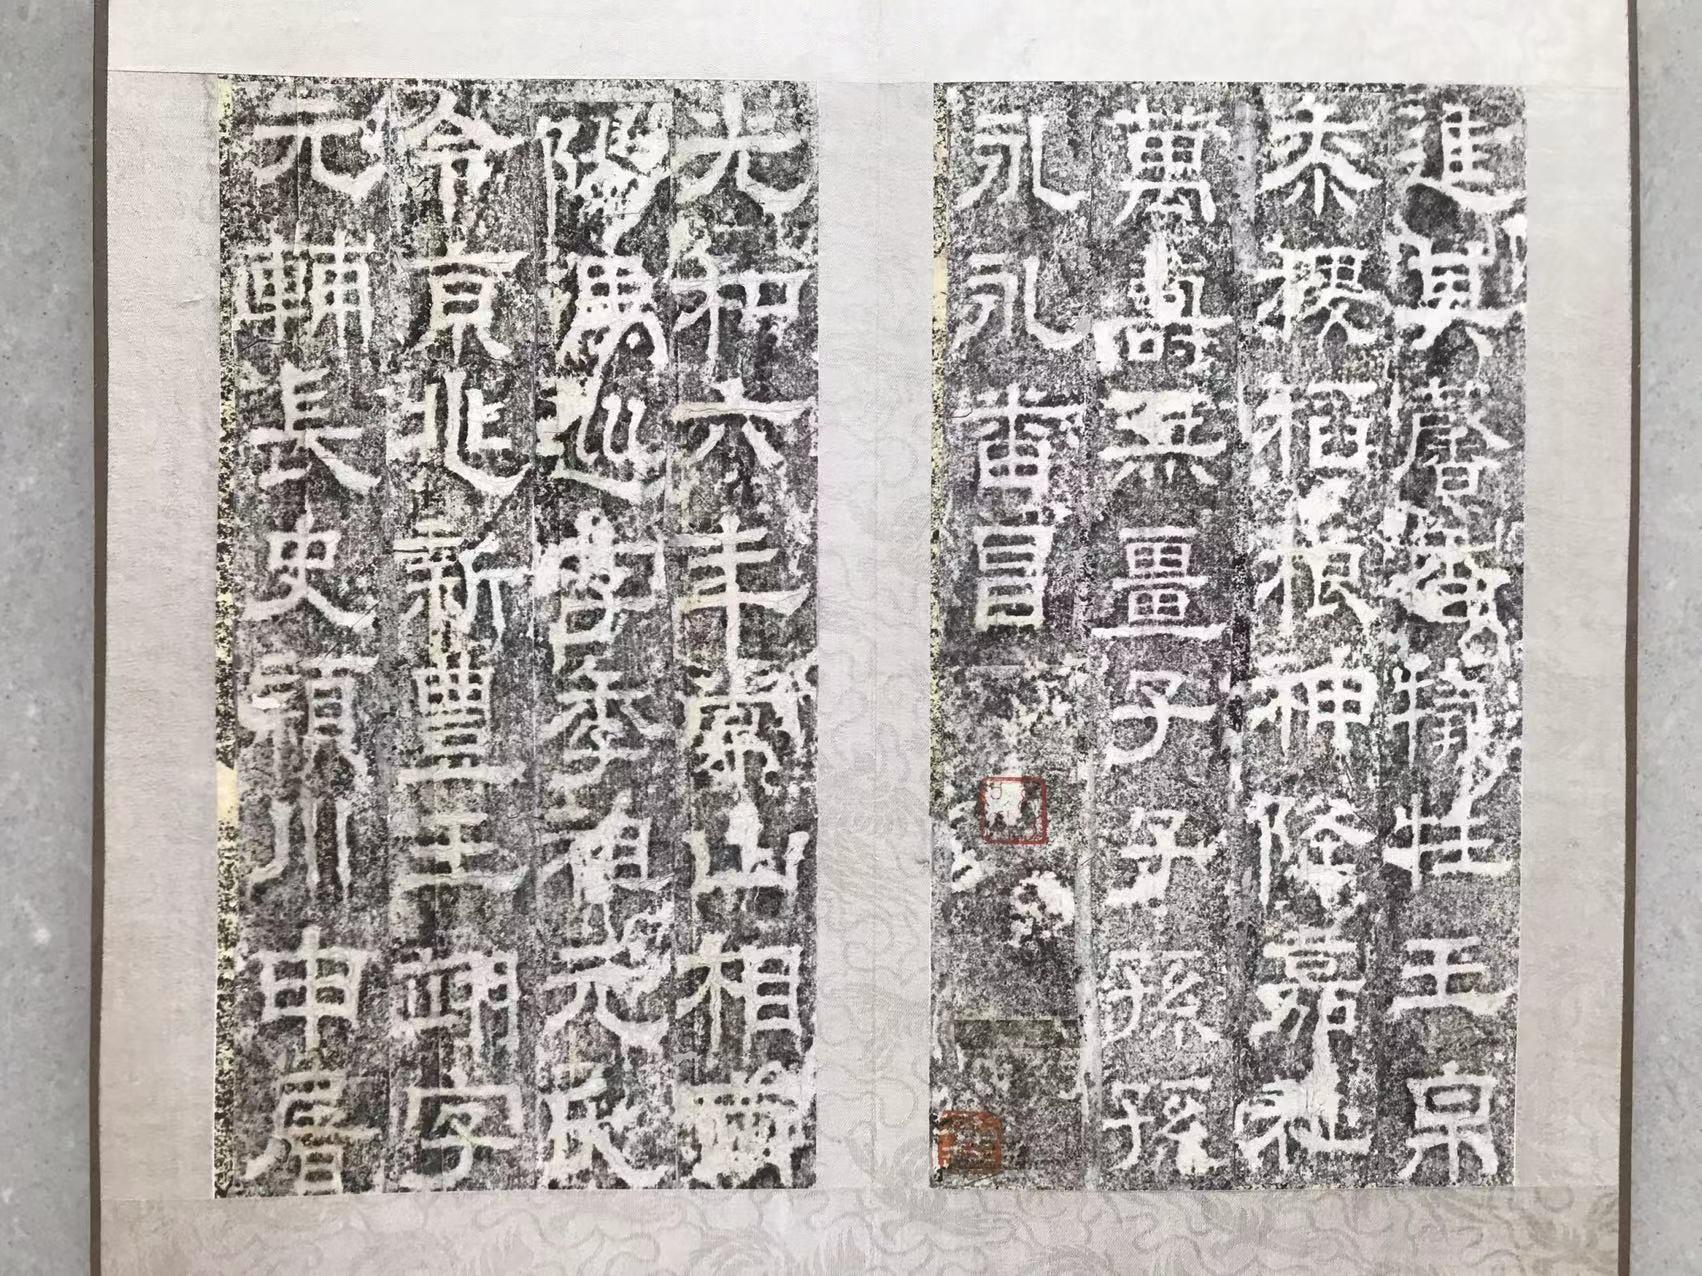 進其馨香犧牲玉帛
黍稷稻粮神降嘉祉
萬壽無畺子子孫孫
永永番昌
光和六年常山相南
陽馮巡字季祖元氏
令京兆新豐王翊字
元輔長史潁川申屠